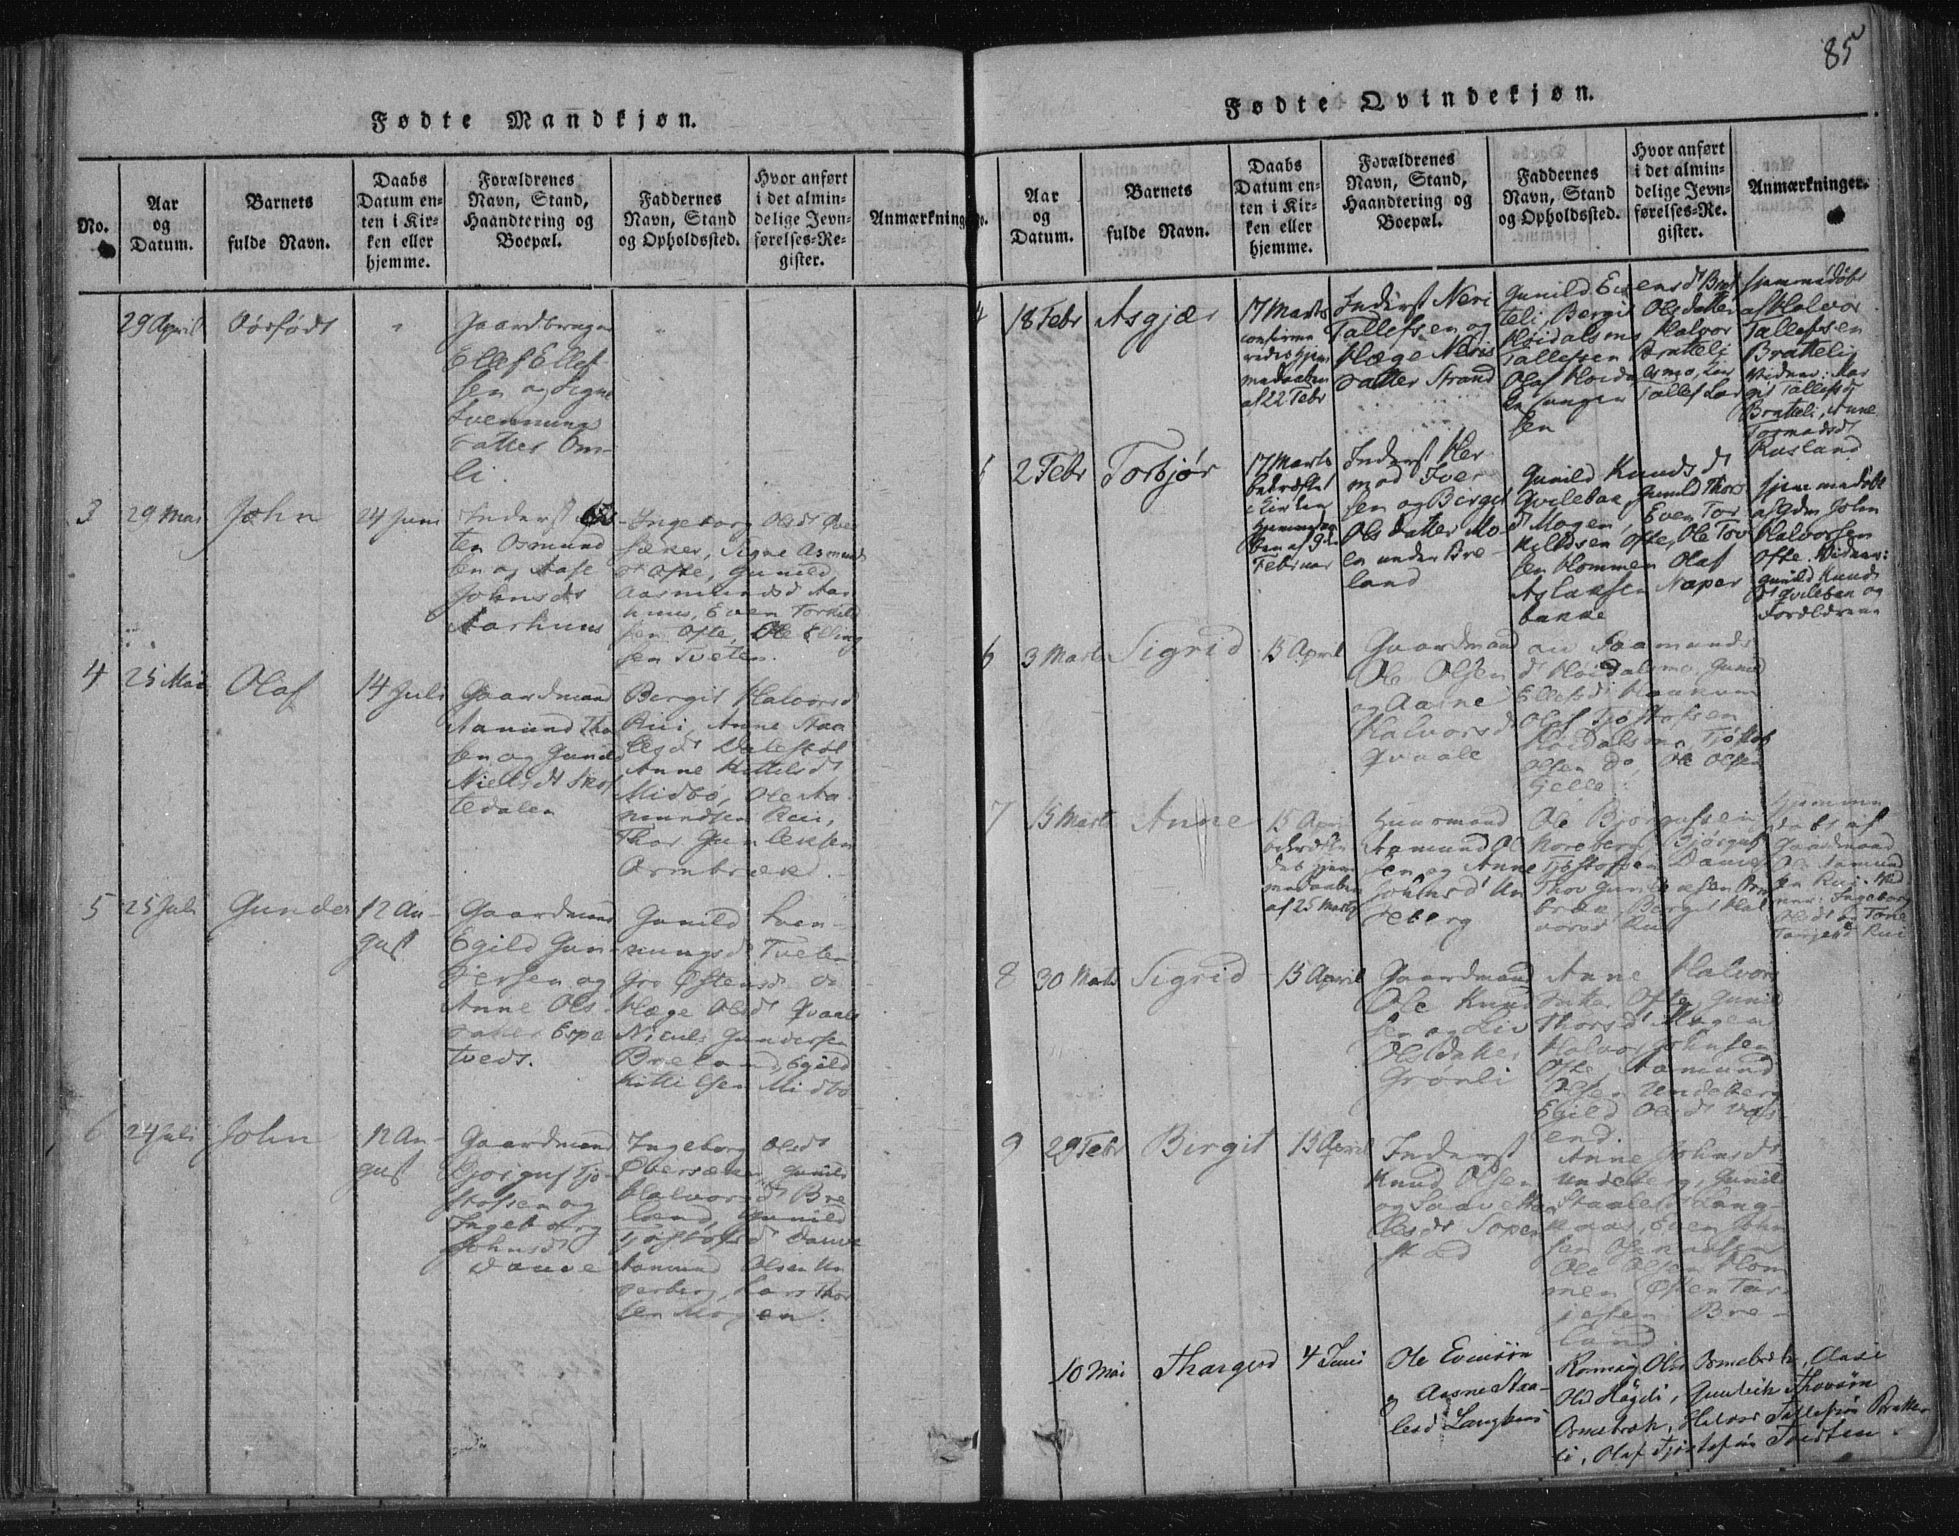 85
Fødte Mandkjøn.
No.
Aar
og
Datum.
Barnets
fulde Navn.
Daabs
Datum en-
ten i Kir-
ken eller
hjemme.
Forældrenes
Navn, Stand,
Haandtering og
Boepæl.
Faddernes
Navn, Stand
og Opholdssted.
Hvor anført
i det almin-
delige Jevn-
førelses-Re-
gister.
Anmærkning
29 April
Dødfødt
Gaardbruger
Olaf Ellef-
sen og Signe
Svennungs
datter Om-
li.
3
29 Mai
John
24 Juni
Inderst
ten Osmund
sen og Aase
Johnsdr
Aarhuus
Ingeborg Olsdt
Signe Asmunds
dt Ofte, Gunild
Aasmundsdt Aar
huus, Even Torkild
sen Ofte, Ole Elling
sen Tveten.
4
25 Mai
Olaf
14 Juli
Gaardmand
Aamund Tho
sen og Gunild
Nielsdt Skof
tedalen
Bergit Halvorsd
Rui, Anne Staa
lesdt Dalestøl
Anne Kittilsdt
Midbø, Ole Aa
mundsen Rui,
Thor Gunleksen
Ormbrek.
5
25 Juli
Gunder
12 Au-
gust
Gaardmand
Egild Gun-
dersen og
Anne Ols
datter Espe
tvedt.
Gunild Sven-
nungsdt Tveten
Gro Østensdt do
Hæge Olsdt Qvaale
Niculs Gundersen
Breland, Egild
Kittilsen Midbø
6
24 Juli
John
12 Au-
gust
Gaardmand
Bjørguf Tjø-
stofsen og
Ingeborg
Johnsdt
Dauve
Ingeborg Olsdt
Gunild
Halvorsdt Bre
land, Gunild
Tjøstofsdt Dauve
Aamund Olsen Un
deberg, Lars Thor
sen Mogen.
Fødte Qvindekjøn.
Aar
og
Datum.
Barnets
fulde Navn.
Daabs
Datum en-
ten i Kir-
ken eller
hjemme.
Forældrenes
Navn, Stand,
Haandtering og
Boepæl.
Faddernes
Navn, Stand
og Opholdssted.
Hvor anført
i det almin-
delige Jevn-
førelses-Re-
gister.
Anmærkninger.
4
18 Febr
Asgjær
17 Marts
confirme
redes hjem
medaaben
af 22 Febr
Inderst Neri
Tallefsen og
Hæge Neris
datter Strand
Gunild Evensdt Brat
teli, Bergit Olsdatter
Høidalsmo, Halvor
Tallefsen Bratteli
Olaf Hoidalsmo,
Tallef Lar
sen
hjemmedøbt
af Halvor
Tallefsen
Bratteli
Vidner: Mar
git Tallefsdt
Bratteli, Anne
Tormodsdt
Rusland
2 Febr
Torbjør
17 Marts
bekræftet
i Kirken
hjemmedaa
ben af 9de
Februar
Inderst Her
mod Iver
sen og Bergit
Olsdatter Mo
en under Bre-
land
Gunild Knudsdt
Qvilebæk, Gunild Thors
dt Mogen, Even Tor
kildsen Ofte, Ole Tov
sen Hommen Olaf
Aslaksen Naper
banke
hjemmedøbt
af Gdm John
Halvorsen
Ofte. Vidner:
Gunild Knuds
dt Qvileban og
Forældrene
6
3 Marts
Sigrid
15 April
Gaardmand
Ole Olsen
og Aasne
Halvorsdt
Qvaale
Saamunds
dt Høidalsmo, Gunild
Ellefsdt Haakum
Olaf Tjøstofsen
Høidalsmo, Tjøstof
Olsen do, Ole Olsen
Gjelle.
7
15 Marts
Anne
15 April
bekræfte
det hjem
medaaben
af 25 Marts
Huusmand
Aamund Ol
sen og Anne
Johnsdt Un
deberg
Ole Bjørgufsen
Noreberg, Bjørguf
Tjøstofsen Dauve
Thor Gunleksen Orm
bræk, Bergit Hal
vorsd Rui
hjemme
døbt af
Gaardmand
Ole Aamund
sen Rui. Vid
ner: Ingeborg
Olsdt og Tone
Torjersd Rui
8
30 Marts
Sigrid
15 April
Gaardmand
Ole Knud
sen og Liv
Olsdatter
Grønli
Anne Halvors
datter Ofte, Gunild
Thorsdt Mogen
Halvor Johnsen
Ofte, Aamund
Olsen Undeberg
Egild Olsdt
end.
9
29 Febr
Birgit
15 April
Inderst
Knud Olsen
og Saave
lesdt
Anne Johnsdt
Undeberg, Gunild
Staalesd Lang-
huus, Even John
sen
Ole Olsen Hom
men Østen Tor
jesen Bre-
land
10 Mai
Thorgerd
4 Juni
Ole Evensøn
& Aasne Staa-
lesd Langhuus
Ronnig Olsd Ormebrek, Aase
Olsd Høgdi, Gunleik Thorsøn
Ormebrek, Halvor Tallefsøn Bratte
li, Olaf Tjøstofsøn Tveiten.